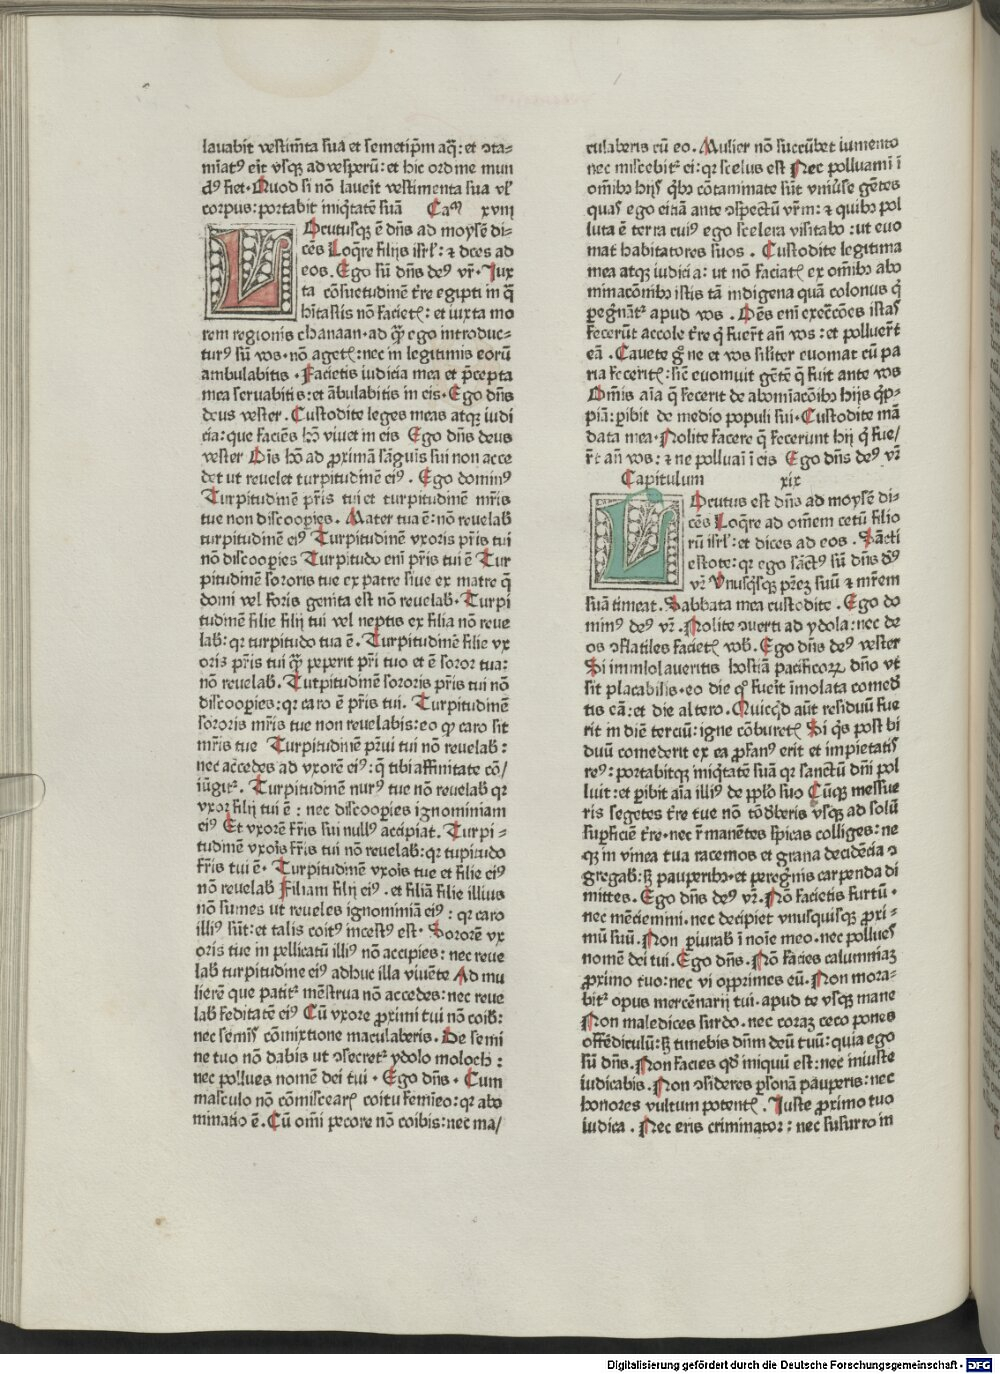 lauabit vestim̄ta suā et semetip̄m aq̄: et ꝯta⸗
miat᷒ erit vsq̄ ad vesperū: et hic ordine mun
d᷒ fiet. Quod si nō lauerit vestimenta sua vl̓
corpus: portabit iniq̇tatē suā Cam xviij
Locutusq̄ ē dn̄s ad moysē di⸗
cēs Loq̄re filijs isrl̓: ⁊ dices ad
eos. Ego sū dn̄s de᷒ vr̄. Jux
ta cōsuetudinē t̄re egipti in q̄
hītastis nō facietꝭ: et iuxta mo
rem regionis chanaan. ad quā ego introduc⸗
tur᷒ sū vos. nō agetꝭ: nec in legitimis eorū
ambulabitis. Facietis iudicia mea et p̄cepta
mea seruabitis: et ābulabitis in eis. Ego dn̄s
deus vester. Custodite leges meas atqꝫ iudi
cia: que faciēs hō viuet in eis Ego dn̄s deus
vester Oīs hō ad ꝓximā sāguīs sui non acce
det ut reuelet turpitudinē ei᷒. Ego domin᷒
Turpitudinē pr̄is tui et turpitudinē mr̄is
tue non discooꝑies. Mater tua ē: nō reuelab̓
turpitudinē ei᷒ Turpitudinē vxoris pr̄is tui
nō discooꝑies Turpitudo enī pr̄is tui ē Tur
pitudinē sororis tue ex patre siue ex matre q̄
domi vel foris genita est nō reuelab̓. Turpi
tudinē filie filij tui vel neptis ex filia nō reue
lab̓: qꝛ turpitudo tua ē. Turpitudinē filie vx
oris pr̄is tui quā peperit pr̄i tuo et ē soror tua:
nō reuelab̓. Turpitudinē sororis pr̄is tui nō
discooꝑies: qꝛ caro ē pr̄is tui. Turpitudinē
sororis mr̄is tue non reuelabis: eo ꝙ caro sit
mr̄is tue Turpitudinē pr̄ui tui nō reuelab̓:
nec accedes ad vxorē ei᷒: q̄ tibi affinitate cō/
iūgit᷑. Turpitudinē nur᷒ tue nō reuelab̓ qꝛ
vxor filij tui ē: nec discooꝑies ignominiam
ei᷒ Et vxorē fr̄is sui null᷒ accipiat. Turpi⸗
tudinē vxoīs fr̄is tui nō reuelab̓: qꝛ tupitudo
fr̄is tui ē. Turpitudinē vxoīs tue et filie ei᷒
nō reuelab̓ Filiam filij ei᷒. et filiā filie illius
nō sumes ut reueles ignominiā ei᷒: qꝛ caro
illi᷒ sūt: et talis coit᷒ incest᷒ est. Sororē vx
oris tue in pellicatū illi᷒ nō accipies: nec reue
lab̓ turpitudine ei᷒ adhuc illa viuēte Ad mu
lierē que patit᷑ mēstrua nō accedes: nec reue
lab̓ feditatē ei᷒ Cū vxore ꝓximi tui nō coib̓:
nec semīs cōmixtione maculaberis. De semi
ne tuo nō dabis ut ꝯsecret᷑ ydolo moloch:
nec pollues nomē dei tui. Ego dn̄s. Cum
masculo nō cōmiscearꝭ coitu femīeo: qꝛ abo
minatio ē. Cū om̄i pecore nō coibis: nec ma/
culaberis cū eo. Mulier nō succūbet iumento
nec miscebit᷑ ei: qꝛ scelus est Nec polluamī ī
om̄ibꝰ hijs q̇bꝰ cōtaminate sūt vniūse gētes
quas ego eiciā ante ꝯspectū vr̄m: ⁊ quibꝰ pol
luta ē terra cui᷒ ego scelera visitabo: ut euo
mat habitatores suos. Custodite legitima
mea atqꝫ iudicia: ut nō faciatꝭ ex om̄ibꝰ abo
minacōnibꝰ istis tā indigena quā colonus q̇
ꝑegn̄at᷑ apud vos. Oēs enī execrc̄ōes istas
fecerūt accole t̄re q̇ fuer̄t an̄ vos: et polluer̄t
eā. Cauete gͦ ne et vos sil̓iter euomat cū pa
ria feceritꝭ: sic̄ euomuit gētē q̄ fuit ante vos
Om̄is aīa q̄ fecerit de abomīacōibꝰ hijs q̇p⸗
piā: ꝑibit de medio populi sui. Custodite mā
data mea. Nolite facere q̄ fecerunt hij q̇ fue/
r̄t an̄ vos: ⁊ ne polluaī ī eis Ego dn̄s de᷒ vr̄
Capitulum xix
Locutus est dn̄s ad moysē di⸗
cēs Loq̄re ad om̄em cetū filio
rū isrl̓: et dices ad eos. Sancti
estote: qꝛ ego sāct᷒ sū dn̄s d᷒
vr̄ Vnusq̇sqꝫ pr̄eꝫ suū ⁊ mr̄em
suā timeat. Sabbata mea custodite. Ego do
min᷒ de᷒ vr̄. Nolite ꝯuerti ad ydola: nec de
os ꝯflatiles facietꝭ vob̓. Ego dn̄s de᷒ vester
Si immolaueritis hostiā pacificoꝝ dn̄o vt
sit placabilis. eo die qͦ fuerit īmolata comed
tis eā: et die altero. Quicq̇d aūt residuū fue
rit in diē terciū: igne cōburetꝭ Si q̇s post bi
duū comederit ex ea ꝓfan᷒ erit et impietatis
re᷒: portabitqꝫ iniq̇tatē suā qꝛ sanctū dn̄i pol
luit: et ꝑibit aīa illi᷒ de pplo suo Cūqꝫ messue
ris segetes t̄re tue nō tōdeberis vsqꝫ ad solū
suꝑficiē t̄re. nec r̄manētes spicas colliges: ne
qꝫ in vinea tua racemos et grana decidēcia ꝯ
gregab̓: sꝫ pauperibꝰ. et peregn̄is carpenda di
mittes. Ego dn̄s de᷒ vr̄. Nō facietis furtū.
nec mēciemini. nec decipiet vnusquisqꝫ ꝓxi⸗
mū suū. Non ꝑiurab̓ ī noīe meo. nec pollues
nomē dei tui. Ego dn̄s. Nō facies calumniaꝫ
ꝓximo tuo: nec vi opprimes eū. Non mora⸗
bit᷑ opus mercēnarij tui. apud te vsqꝫ mane
Non maledices surdo. nec coraꝫ ceco pones
offēdiculū: sꝫ timebis dn̄m deū tuū: quia ego
sū dn̄s. Non facies qd̓ iniquū est: nec iniuste
iudicabis. Non ꝯsideres ꝑsonā pauperis: nec
honores vultum potentꝭ. Juste ꝓximo tuo
iudica. Nec eris criminator: nec susurro in
Digitalisierung gefördert durch die Deutsche Forschungsgemeinschaft - DFG